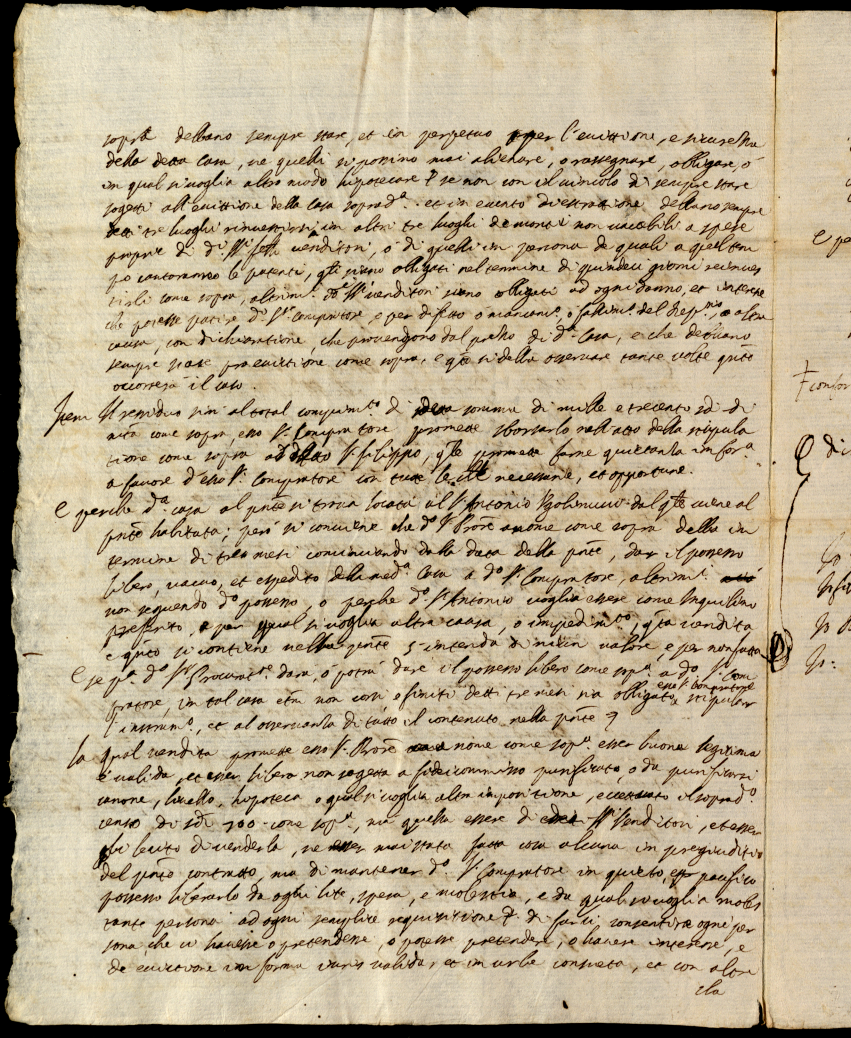 sopra debbano sempre stare, et in perpetuo per l'evittione, e sicurezza
della detta Casa, ne quelli si possino mai alienare, o rassegnare, obligare, ò
in qual si voglia altro modo hipotecare se non con il vincolo di sempre stare
sogetti all'evittione della Casa soprad.ª et in evento d'estrattione debbano sempre
detti tre luoghi rinvestirsi in altri tre luoghi de monti non vacabili a spese
proprie di d.i SS.ri venditori, ò di quelli in persona de quali a quel tem
po cantaranno le patenti, q.li siano obligati nel termine di quindeci giorni rinves
tirli come sopra, altrim.ti d.i SS.ri venditori siano obligati ad ogni danno, et interesse
che potesse patire d.o S.r Compratore, e per difetto o mancam.to, o altra
causa, con dichiaratione, che provengono dal prezzo di d.ª Casa, e che debbano
sempre stare pro evictione come sopra, e q.to si debba osservare tante volte q.nto
occorrerà il caso.
Item Il residuo sin' al total compim.to di detta somma di mille e trecento sc.di di
m.ta come sopra, esso S.r Compratore promette sborsarlo nell'atto della stipula
tione come sopra a detto S.r Filippo, q.le prometta farne quietanza in for.ª
a favore d'esso S.r Compratore con tutte le necessarie, et opportune.
E perche d.ª casa al p.nte si trova locata al S.r Antonio dal q.le viene al
p.nte habitata; però si conviene che d.o S.r Pro.re a nome come sopra debba in
termine di tre mesi cominciando dalla data della p.nte, dar il possesso
libero, vacuo, et espedito della med.ª Casa a d.o S.r Compratore, altrim.ti
non seguendo d.o possesso, o perche d.o S.r Antonio voglia essere come Inquilino
preferito, o per qual si voglia altra causa, o impedim.to, q.ta vendita
e q.nto si contiene nella p.nte s'intenda di niun valore, e per non fatta
E se p.ª d.o S.r Procurat.re darà, ò potrà dare il possesso libero come sop.ª a d.o S.r Com
pratore, in tal caso etiam non corsi, e finiti detti tre mesi sia obligato esso S.r Compratore a stipular
l'instrum.to, et al osservanza di tutto il contenuto nella p.nte
La qual vendita promette esso S.r Pro.re a nome come sop.ª esser buona legitima
e valida, et esser libera non sogetta a fideicommisso purificato, o da purificarsi
canone, livello, hipoteca, o qual si voglia altra impositione, eccettuato il soprad.o
censo di sc.di 700 come sop.ª, ma quella essere di SS.ri Venditori, et esser
li lecito di venderla, ne esser mai stata fatta cosa alcuna in pregiuditio
del p.nte contratto, ma di mantener d.o S.r Compratore in quieto, e pacifico
possesso liberarlo da ogni lite, spesa, e molestia, e da qual si voglia moles
tante persona ad ogni semplice requisitione di farvi consentire ogni per
sona, che vi havesse o pretendesse, o potesse pretendere, o havere interesse, e
de evittione in forma iuris valida, et in urbe consueta, et con altre
cla